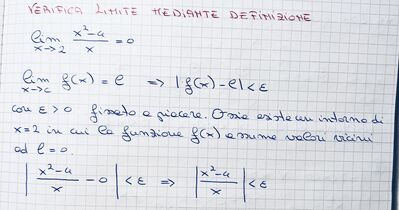 VERIFICA LIMITE MEDIANTE DEFINIZIONE
lim x→2 x²-4/x = 0
lim x→c f(x) = l => |f(x) - l| < ε
con ε > 0 fissato a piacere. Ossia esiste un intorno di
x=2 in cui la funzione f(x) assume valori vicini
ad l=0.
| x²-4/x - 0 | < ε => | x²-4/x | < ε